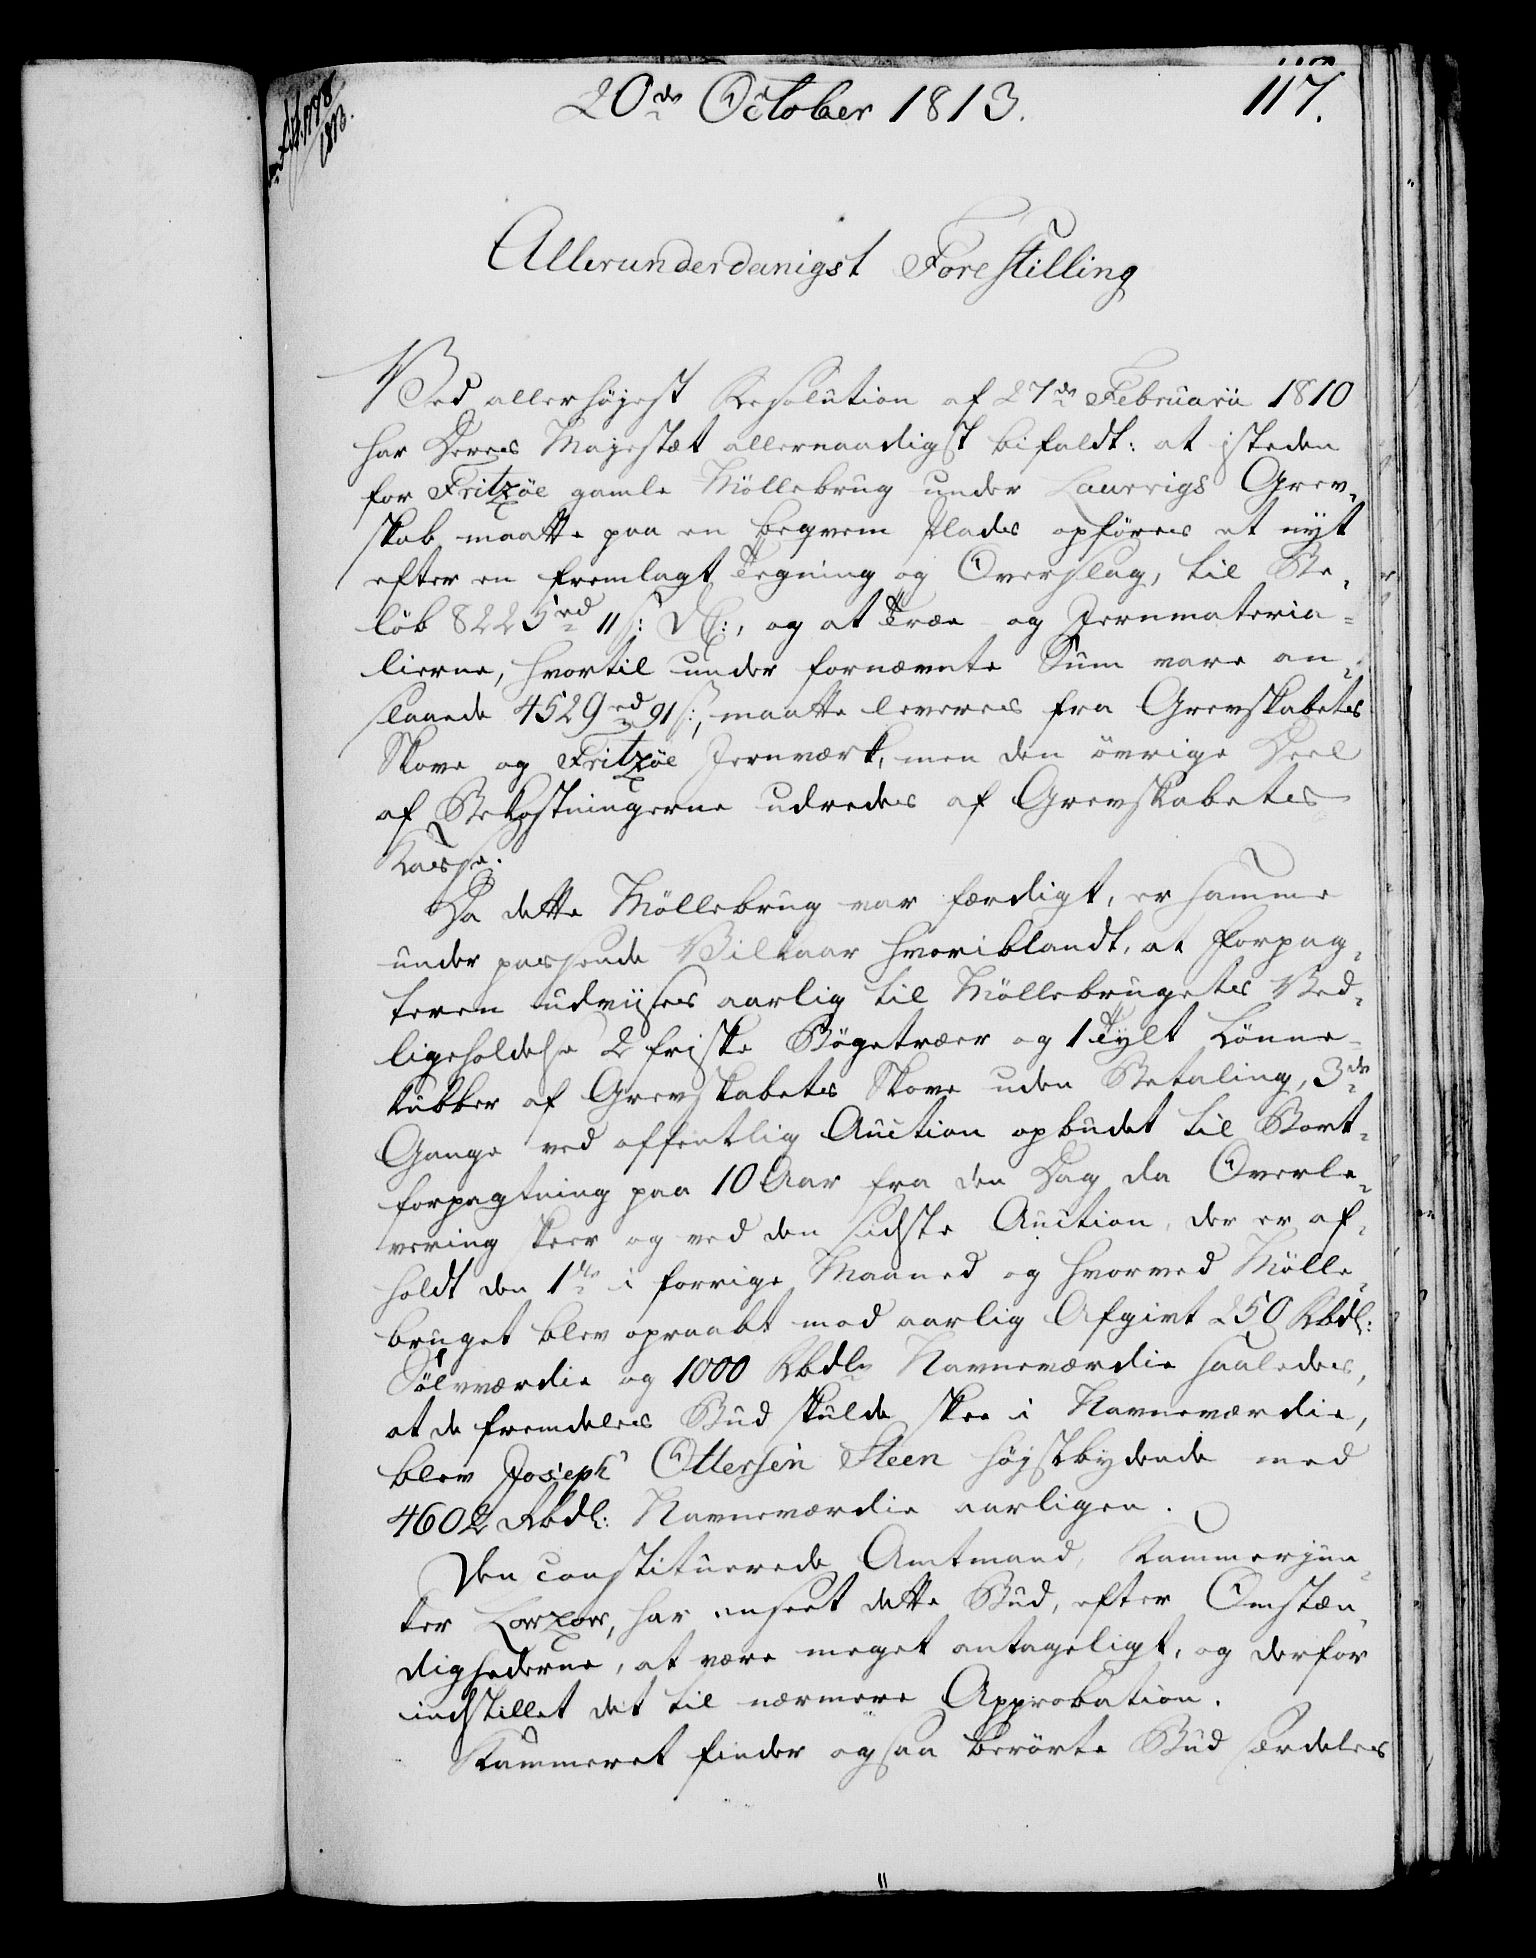 20de October 1813.
117.
1813.
Allerunderdanigst Forestilling
Ved allerhøjest Resolution af 27de Februarii 1810
har Deres Majestæt allernaadigst bifaldt: at isteden
for Fritzøe gamle Möllebrug under Laurvigs Grev-
skab maatte paa en beqvem Plads opföres et nyt
efter en fremlagt Tegning og Overslag, til Be-
löb 8225rd 11 s: DC:, og at Træe og Jernmateria-
lierne, hvortil under fornævnte Sum vare an-
slaaede 4529rd 91 s:, maatte leveres fra Grevskabets
Skove og Fritzøe Jernværk, men den övrige Deel
af Bekostningerne udredes af Grevskabets
Kasse.
Da dette Möllebrug var færdigt, er samme
under passende Vilkaar hvoriblandt, at Forpag-
teren udviises aarlig til Möllebrugets Ved-
ligeholdelse 2 friske Bögetræer og 1 Tylt Lönne-
kubber af Grevskabets Skove uden Betaling, 3de
Gange ved offentlig Auction opbudet til Bort-
forpagtning paa 10 Aar fra den Dag da Overle-
vering skeer og ved den sidste Auction, der er af-
holdt den 1ste i forrige Maaned og hvorved Mölle-
bruget blev opraabt med aarlig Afgivt 250 Rbdl:
Sölvværdie og 1000 Rbdlr Navneværdie saaledes,
at de fremdeles Bud skulde skee i Navneværdie,
blev Joseph Ottersen Steen højstbydende med
4602 Rbdl: Navneværdie aarligen.
Den constituerede Amtmand, Kammerjun-
ker Lowzow, har anseet dette Bud, efter Omstæn-
dighederne, at være meget antageligt, og derfor
indstillet det til nærmere Approbation.
Kammeret finder ogsaa berörte Bud særdeles